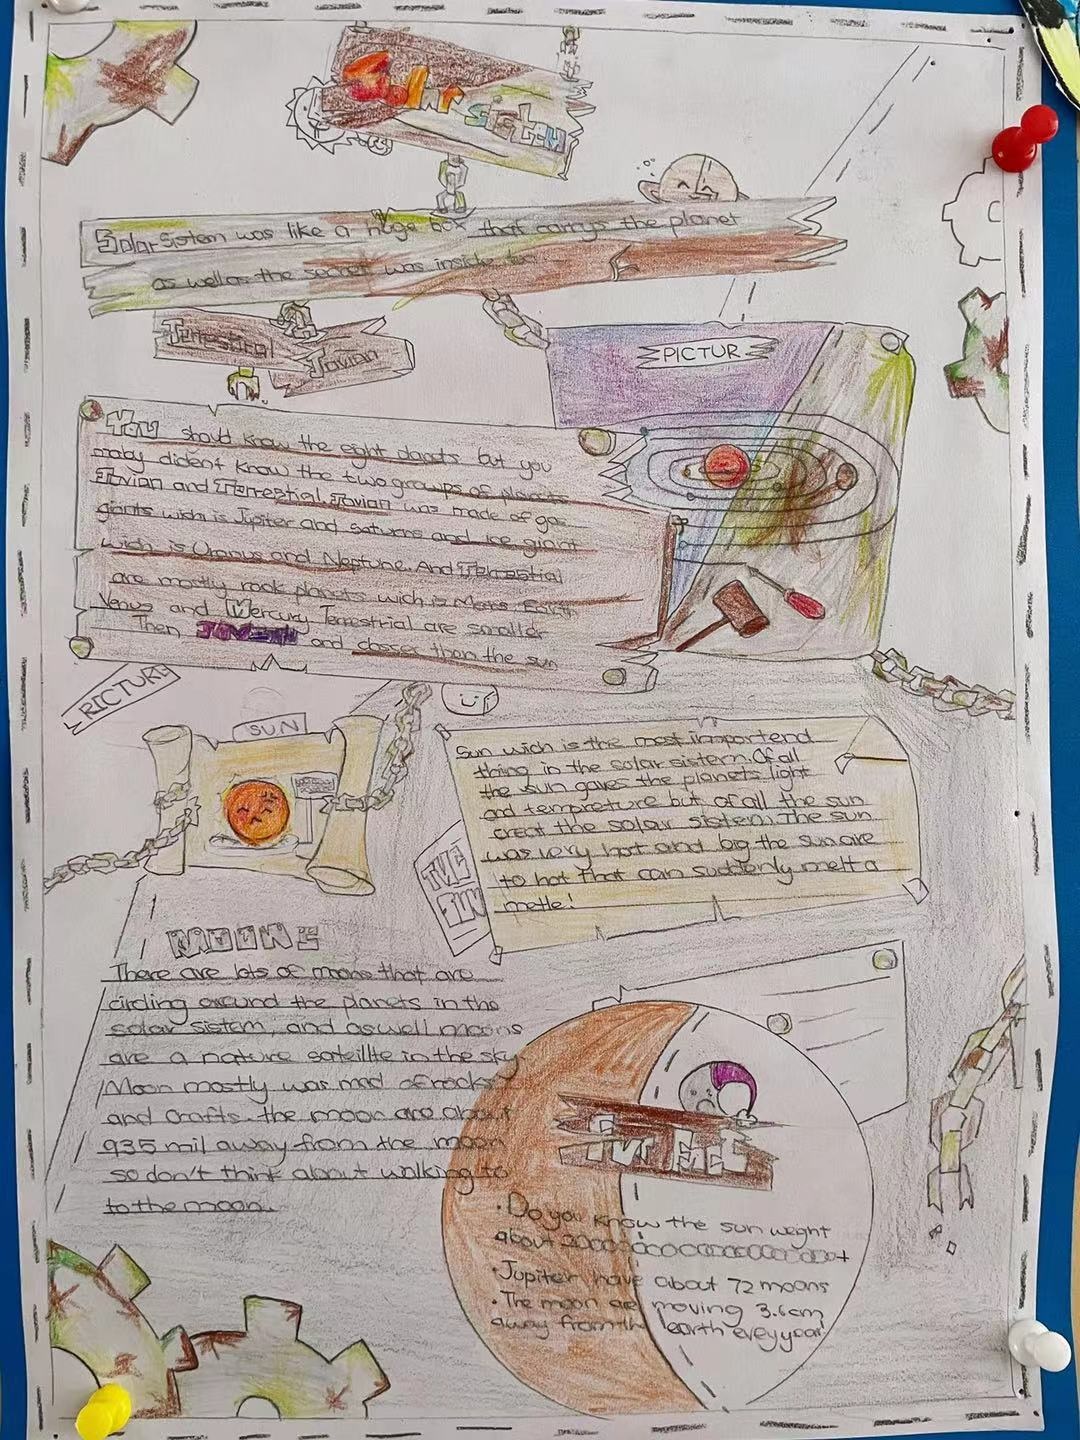 Solar sistem
Solar Sistem was like a huge box that carrys the planet
as wellas the secret was inside too
Terrestrial
Jovian
PICTUR
You should know the eight planets but you
maby dident know the two groups of planets
Jovian and Terrestrial. Jovian was made of gas
giants wich is Jupiter and saturns and ice giant
wich is Uranus and Neptune. And Terrestrial
are mostly rook planets wich is Mars Earth
Venus and Mercury Terrestrial are smaller
Then and closser than the sun
PICTURE
SUN
Sun wich is the most importend
thing in the solar sistem. Of all
the sun gaves the planets light
and tempreture but, of all the sun
creat the solar sistem. The sun
was very hot and big the sun are
to hot That can suddenly melt a
metle!
MOONS
There are lots of moons that are
circling around the planets in the
solar sistem, and aswell moons
are a nature sateillte in the sky
Moon mostly was mad of rocks
and crafts. the moon are about
935 mil away from the moon
so don't think about walking to
to the moon.
Do you know the sun weight
about
Jupiter have about 72 moons
The moon are moving 3.6cm
away from th earth evey year